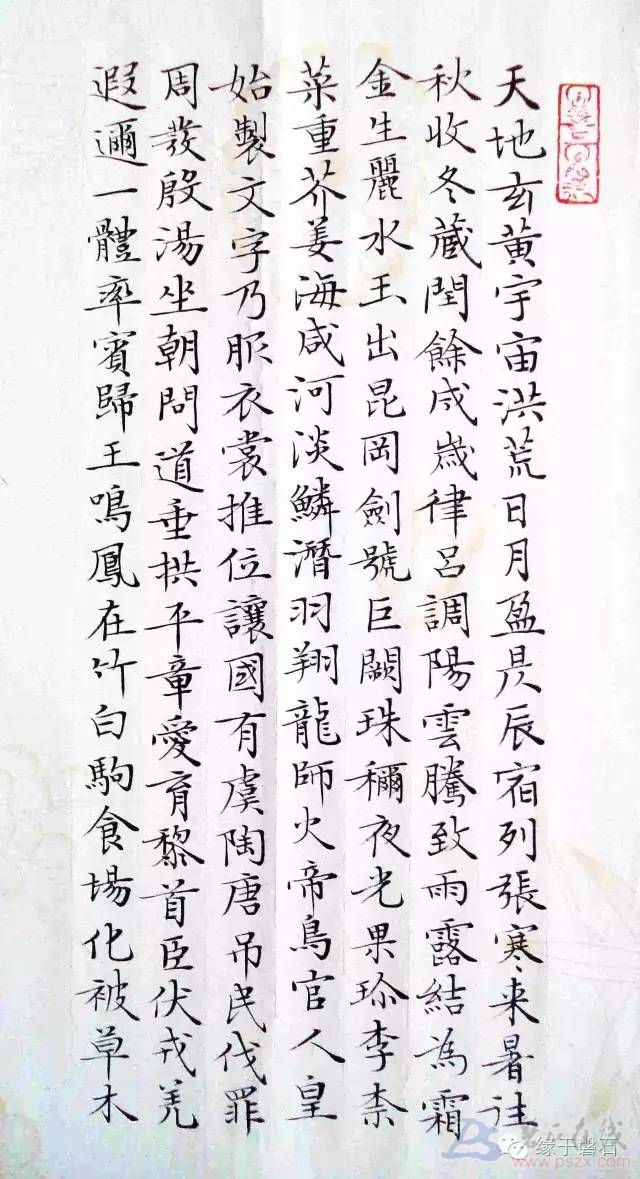 天地玄黃宇宙洪荒日月盈昃辰宿列張寒来暑往
秋收冬藏閏餘成歲律呂調陽雲騰致雨露結為霜
金生麗水玉出昆岡劍號巨闕珠稱夜光果珎李柰
菜重芥姜海咸河淡鱗潛羽翔龍師火帝鳥官人皇
始製文字乃服衣裳推位讓國有虞陶唐吊民伐罪
周發殷湯坐朝問道垂拱平章愛育黎首臣伏戎羌
遐邇一體率賓歸王鳴鳳在竹白駒食場化被草木
缘于磐石
www.pszx.com